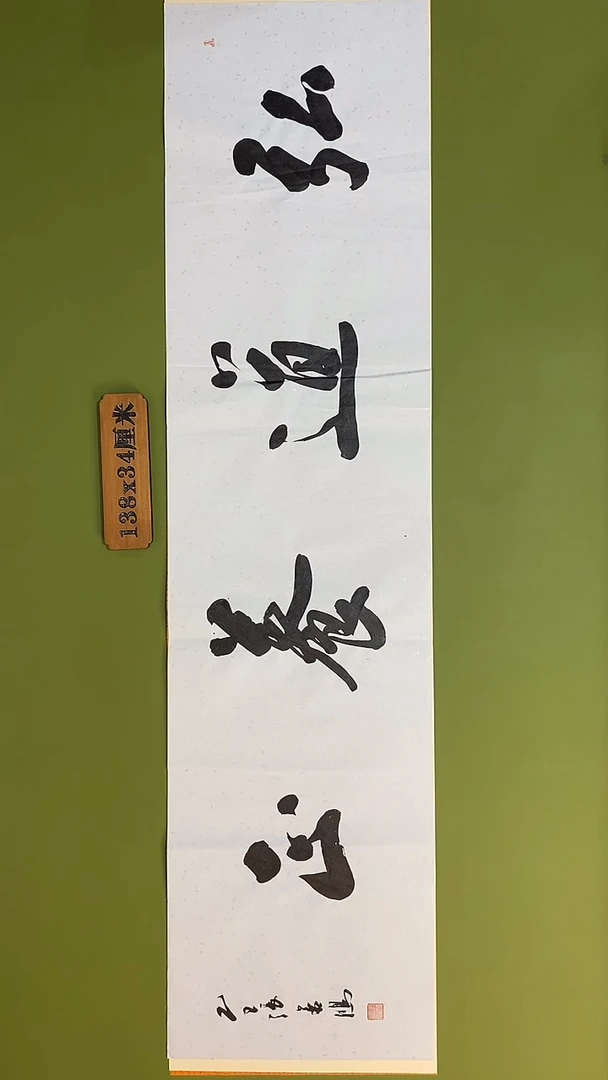 弘道養心
138x34厘米